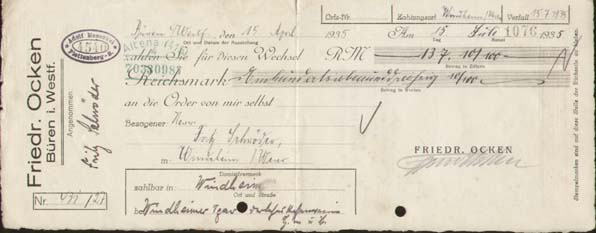 Friedr. Ocken
Büren i. Westf.
Angenommen
Fritz Schröder
Nr.
Adolf
4540
Plettenberg
Büren i/Westf, den 15 April 1935
Orts-Nr.
Zahlungsort Windheim
Verfall 15.7.1935
Ort und Datum der Ausstellung
Am 15 Juli 1935
1076
Tag
Zahlen Sie für diesen Wechsel
RM 137. 10/100
Betrag in Ziffern
Reichsmark Einhundertsiebenunddreißig 10/100
Betrag in Worten
an die Order von mir selbst
Bezogener Herr
Fritz Schröder,
in Windheim /Weser
FRIEDR. OCKEN
Domizilvermerk
zahlbar in Windheim
Ort und Straße
bei Windheimer Spar